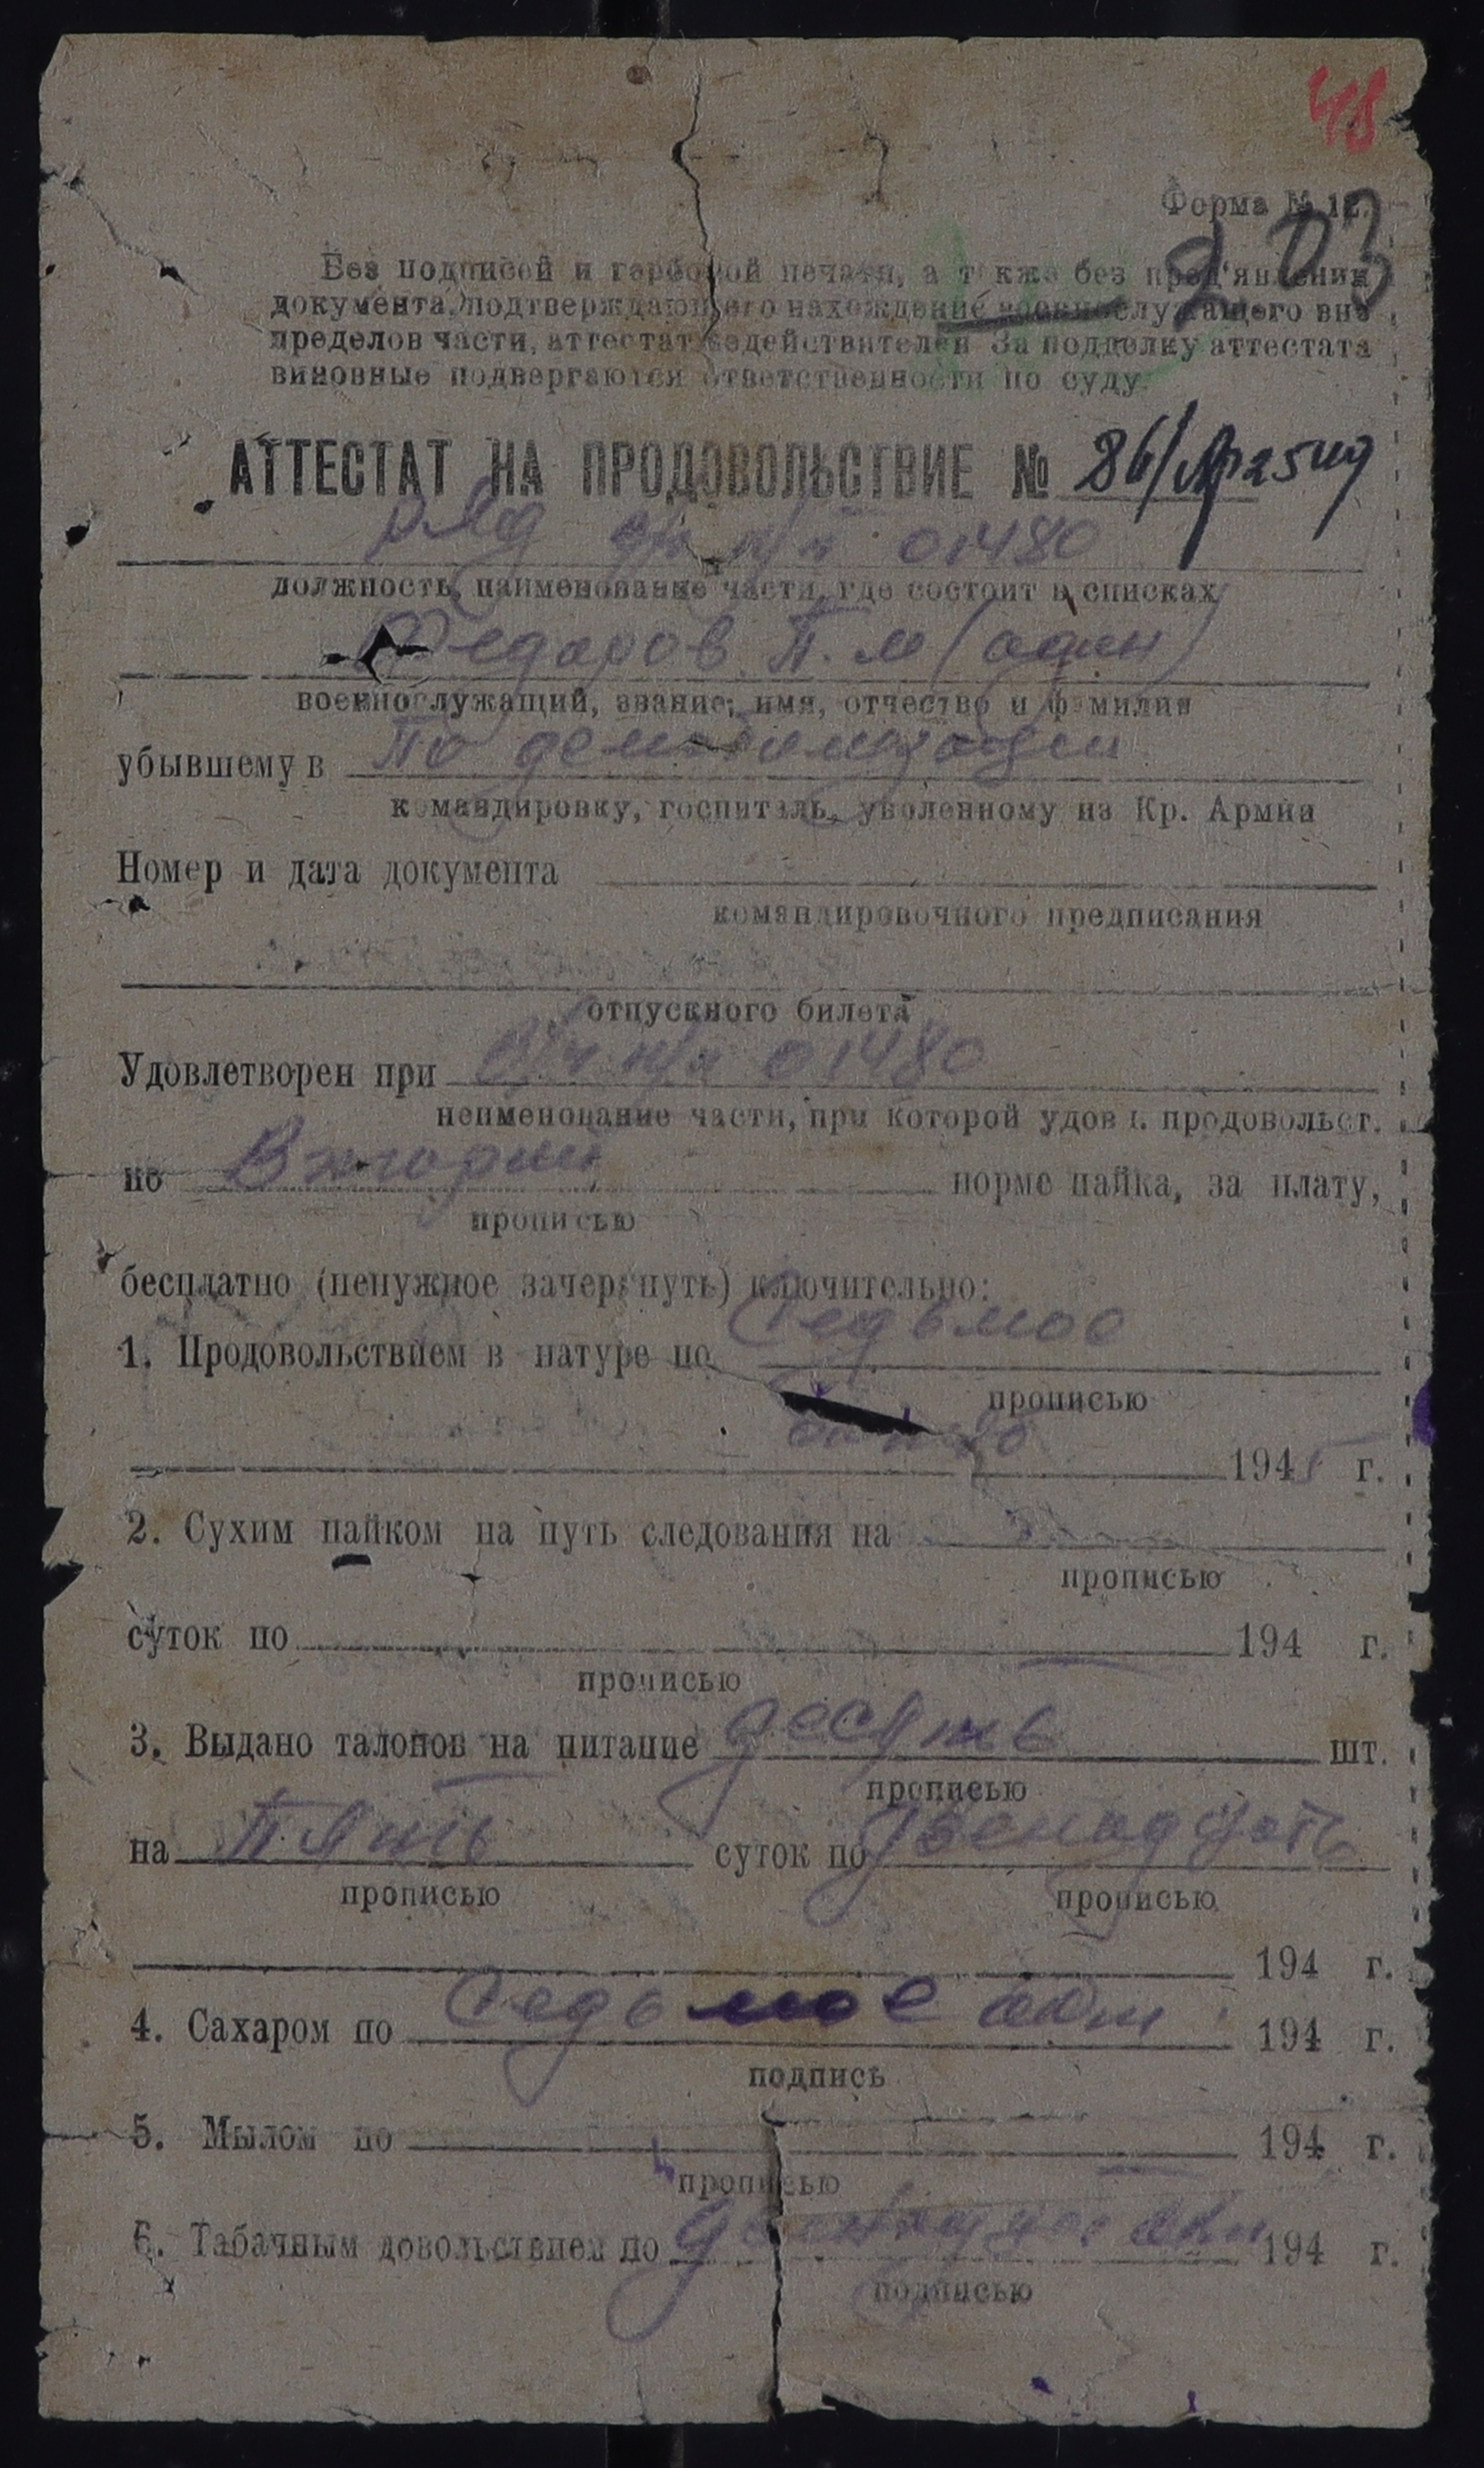 48
Форма № 12.
203
Без подписей и гербовой печати, а также без пред'явления
документа, подтверждающего нахождение военнослужащего вне
пределов части, аттестат недействителен За подделку аттестата
виновные подвергаются ответственности по суду.
АТТЕСТАТ НА ПРОДОВОЛЬСТВИЕ № 86/
ряд в/ч п/п 01480
должность, наименование части, где состоит в списках
Федоров П. М (один)
военнослужащий, звание, имя, отчество и фамилия
убывшему в по демобилизации
командировку, госпиталь, уволенному из Кр. Армии
Номер и дата документа
командировочного предписания
отпускного билета
Удовлетворен при В/ч п/п 01480
неименование части, при которой удовл. продовольст.
по Второй норме пайка, за плату,
прописью
бесплатно (ненужное зачеркнуть) ключительно:
1. Продовольствием в натуре по Седьмое
прописью
1945 г.
2. Сухим пайком на путь следования на
прописью
суток по 194 г.
прописью
3. Выдано талонов на питание десять шт.
прописью
на Пять суток по двенадцать
прописью прописью
194 г.
4. Сахаром по Седьмое окт 194 г.
подпись
5. Мылом по 194 г.
прописью
6. Табачным довольствием по 194 г.
подписью